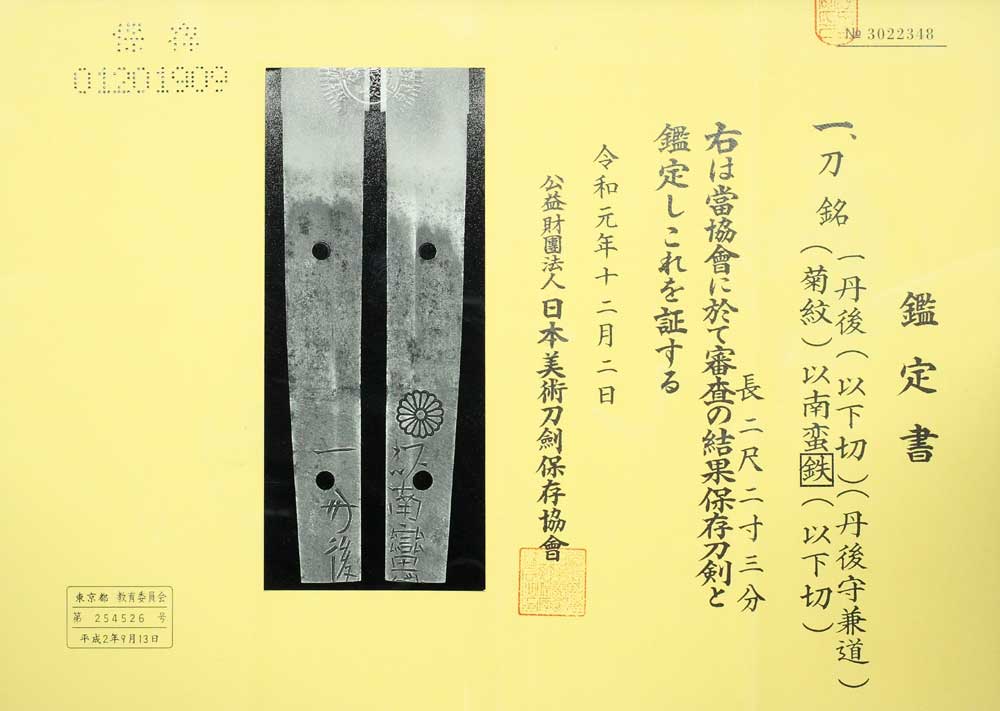 鑑定書
一、刀 銘 一丹後（以下切）（丹後守兼道）
（菊紋）以南蛮鉄（以下切）
長 二尺二寸三分
右は當協會に於て審査の結果保存刀剣と
鑑定しこれを証する
令和元年十二月二日
公益財團法人 日本美術刀劍保存協會
№ 3022348
保存
01201909
一丹後
以南蠻
東京都 教育委員会
第 254526 号
平成2年9月13日